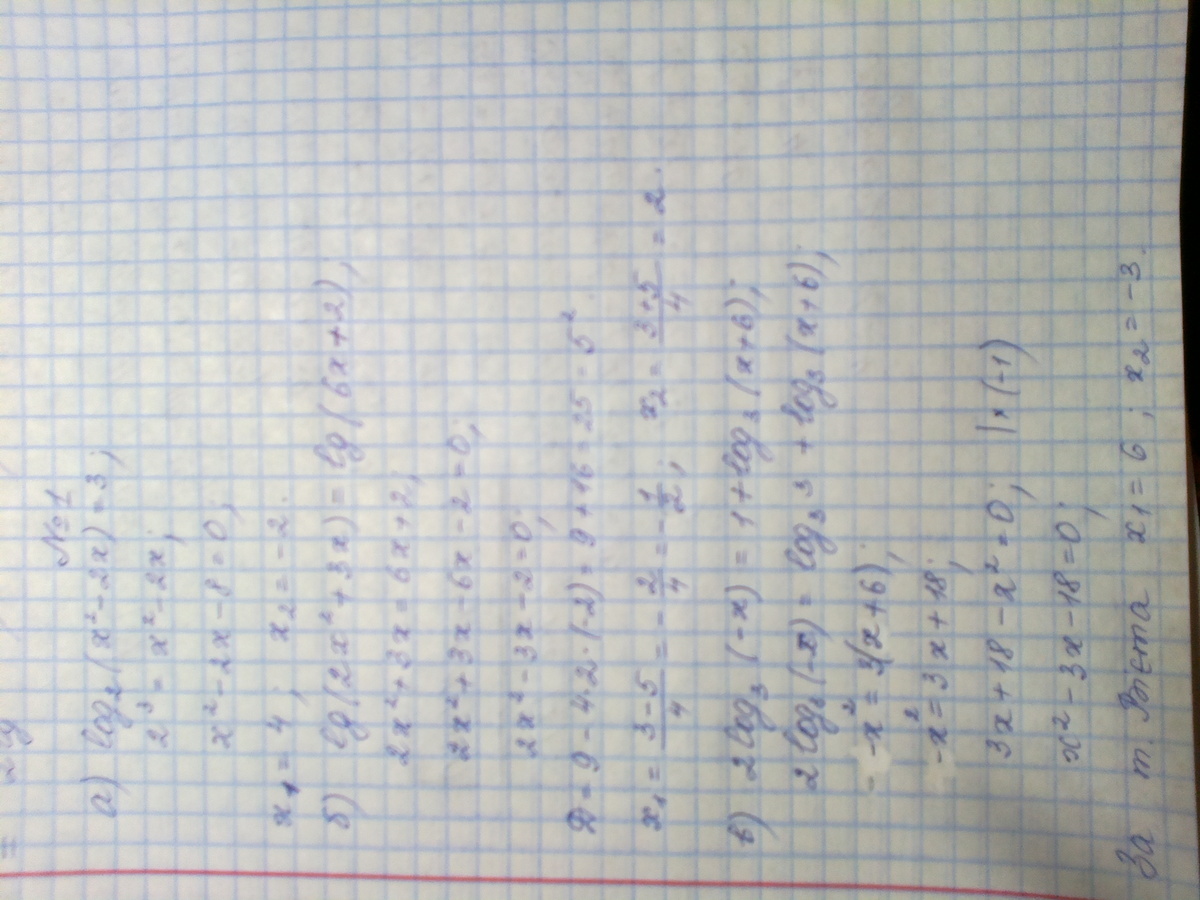 №1
а) log₂(x²-2x)=3;
2³=x²-2x;
x²-2x-8=0;
x₁=4; x₂=-2.
б) lg(2x²+3x)=lg(6x+2);
2x²+3x=6x+2;
2x²+3x-6x-2=0;
2x²-3x-2=0;
D=9-4·2·(-2)=9+16=25=5².
x₁=(3-5)/4=-2/4=-1/2; x₂=(3+5)/4=2.
в) 2log₃(-x)=1+log₃(x+6);
2log₃(-x)=log₃3+log₃(x+6);
-x²=3(x+6);
-x²=3x+18;
3x+18-x²=0; |×(-1)
x²-3x-18=0;
За т. Вієта x₁=6; x₂=-3.